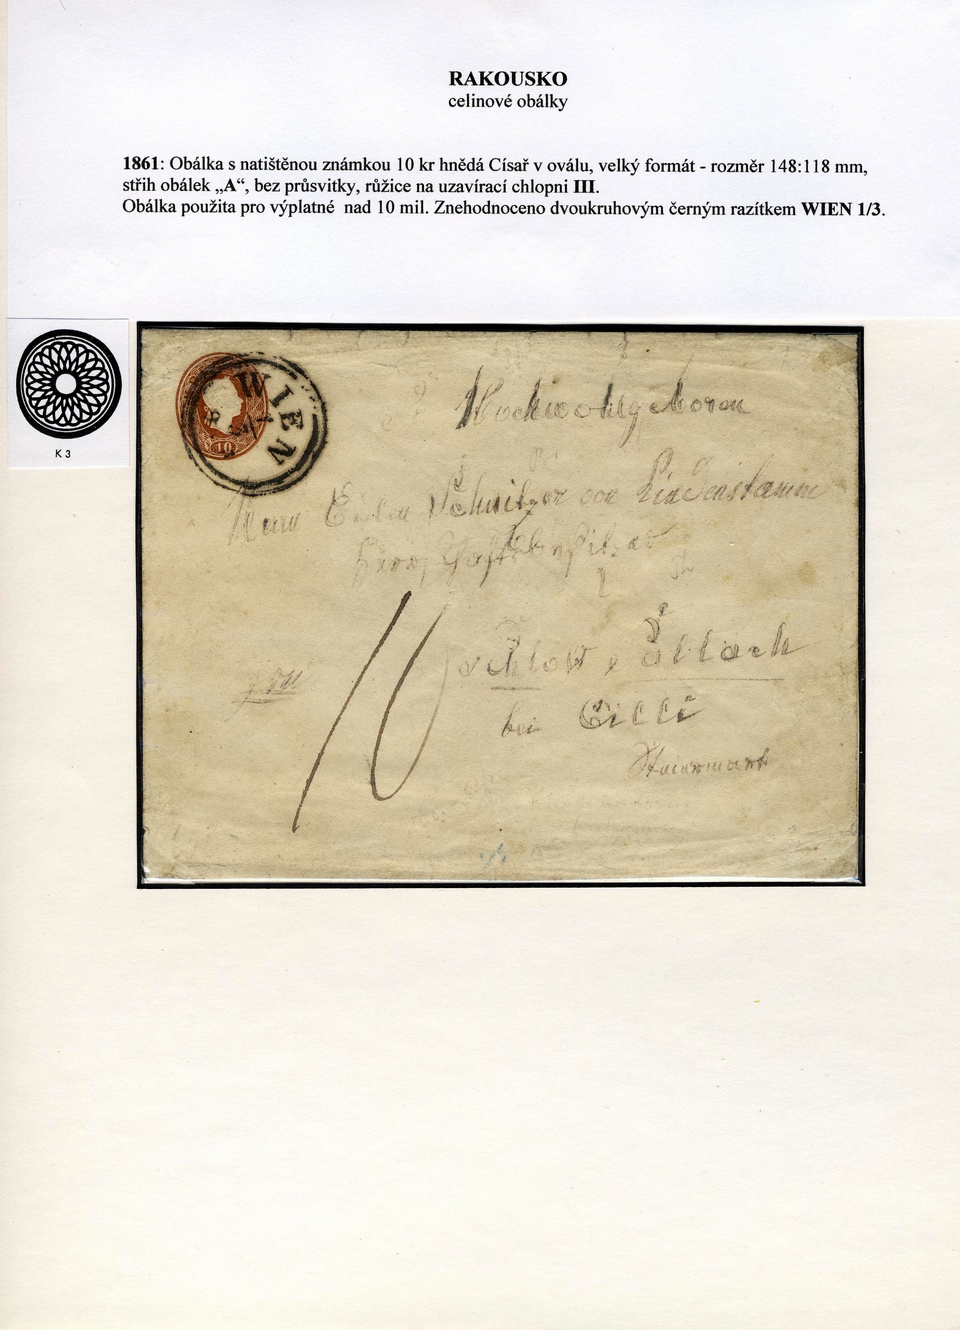 RAKOUSKO
celinové obálky
1861: Obálka s natištěnou známkou 10 kr hnědá Císař v oválu, velký formát - rozměr 148:118 mm,
střih obálek „A“, bez průsvitky, růžice na uzavírací chlopni III.
Obálka použita pro výplatné nad 10 mil. Znehodnoceno dvoukruhovým černým razítkem WIEN 1/3.
K 3
WIEN
10
Hochwohlgeboren
Herrn Edlen Schnitzer von Lindenstamm
10
Schloss
bei Cilli
Steiermark